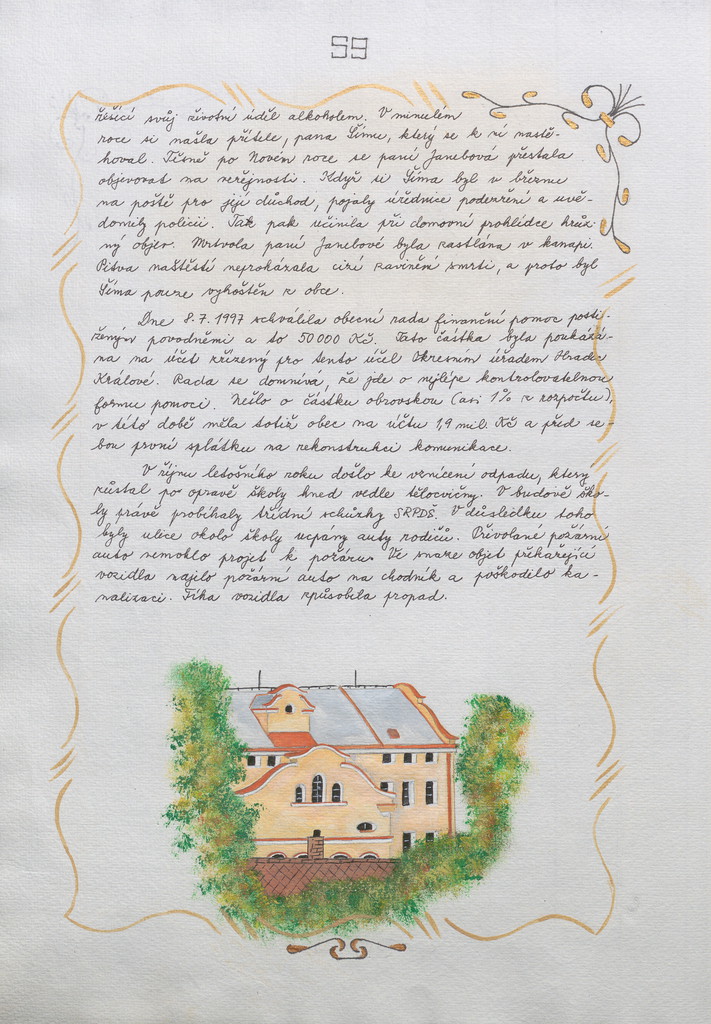 59
řešící svůj životní úděl alkoholem. V minulém
roce si našla přítele, pana Šímu, který se k ní nastě-
hoval. Těsně po Novém roce se paní Janebová přestala
objevovat na veřejnosti. Když si Šíma byl v březnu
na poště pro její důchod, pojaly úřednice podezření a uvě-
domily policii. Tak pak učinila při domovní prohlídce hrůz-
ný objev. Mrtvola paní Janebové byla zastlána v kanapi.
Pitva naštěstí neprokázala cizí zavinění smrti, a proto byl
Šíma pouze vyhoštěn z obce.
Dne 8.7.1997 schválila obecní rada finanční pomoc posti-
ženým povodněmi a to 50 000 Kč. Tato částka byla poukázá-
na na účet zřízený pro tento účel Okresním úřadem Hradec
Králové. Rada se domnívá, že jde o nejlépe kontrolovatelnou
formu pomoci. Nešlo o částku obrovskou (asi 1% z rozpočtu),
v této době měla totiž obec na účtu 1,9 mil. Kč a před se-
bou první splátku na rekonstrukci komunikace.
V říjnu letošního roku došlo ke vznícení odpadu, který
zůstal po opravě školy hned vedle tělocvičny. V budově ško-
ly právě probíhaly třídní schůzky SRPDŠ. V důsledku toho
byly ulice okolo školy ucpány auty rodičů. Přivolané požární
auto nemohlo projet k požáru. Ve snaze objet překážející
vozidla najelo požární auto na chodník a poškodilo ka-
nalizaci. Tíha vozidla způsobila propad.